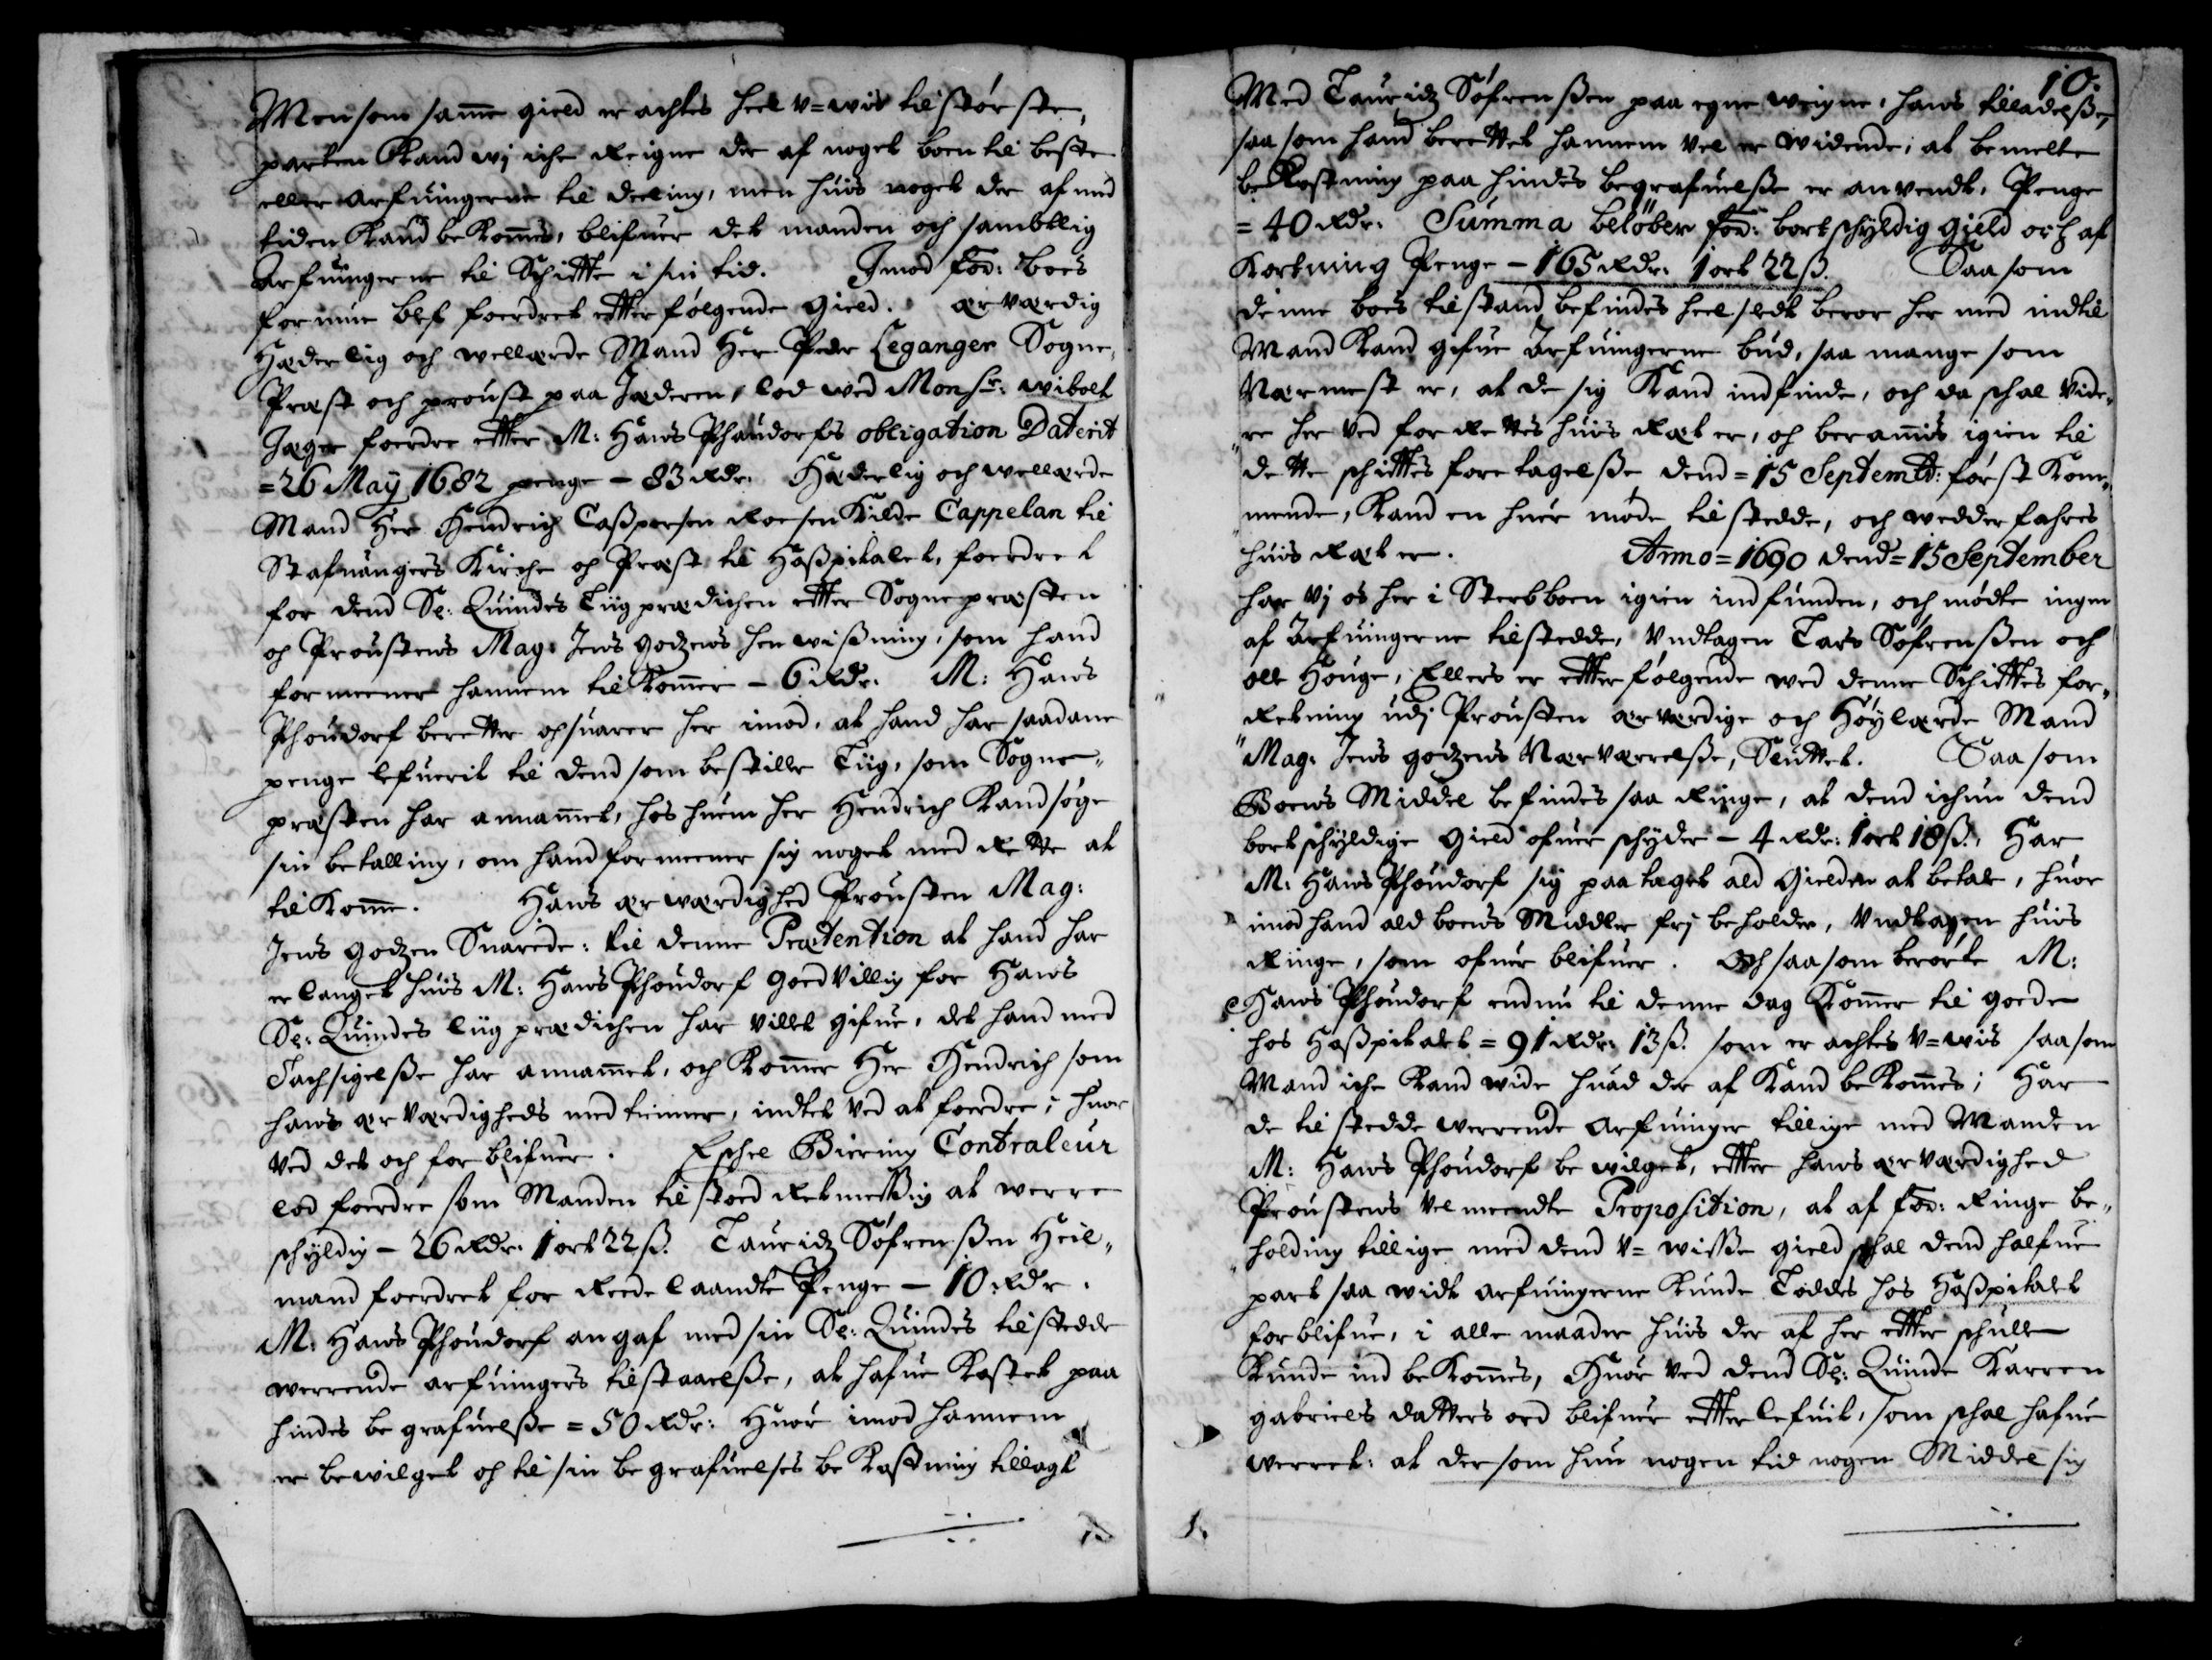 Men som samme gield er achtes heel v=wis til største,
parten Kand wj iche Reigne der af noget boen til beste
eller arfuingerne til deeling, men huis noget der af med
tiden Kand be Kommes, blifuer det manden och sambtlig
Arfuingerne til Schiffte i sin tid. Imod for: Boes
formue blef foerdret effter følgende Gield. ær værdig
Hæderlig och wellærde Mand Her Peder Leganger Sogne,
Præst och proust paa Jæderen, lod ved Monsr: wibolt
Jæger foerdre effter M: Hans Phaudorfs obligation Daterit
=26 Maÿ 1682 penge - 83 Rdr. Hæderlig och wellærde
Mand Her Hendrich Casspersen Roesen Kilde Cappelan til
Stafuangers Kirche och Præst til Hosspitalet, foerdret
for dend Sl: Quindes Liig prædichen effter Sognepræsten
och Proustens Mag: Jens Godzens hen wissning, som hand
formeener hannem til Kommer - 6 Rdr. M: Hans
Phoudorf beretter och suarer her imod, at hand har saadane
penge lefuerit til dend som bestiller Liig, som Sogne,
præsten har annammet, hos huem her Hendrich Kand søge
sin betalling, om hand formeener sig noget med Rette at
til Komme. Hans ær værdighed Prousten Mag:
Jens Godzen Suarede: til denne Prætention at hand har
er langet huis M: Hans Phoudorf Goedvillig for Hans
Sl: Quindes liig prædichen har villet gifue, det hand med
Tachsigelsse har annammet, och Kommer Her Hendrich som
hans ær værdigheds med tienner, indtet ved at foerdre; huor
ved det och for blifuer. Eschel Biering Contraleur
lod foerdre som Manden til stoed Retmessig at werre
schyldig - 26 Rdr. 1 ort 22 ß. Lauridz Søfrenssen Heil,
mand foerdret for Reede laandte Penge - 10 Rdr.
M: Hans Phoudorf angaf med sin Sl: Quindes tilstedde
werrende arfuingers tilstaaelsse, at hafue Kostet paa
hindes be grafuelsse = 50 Rdr: Huor imod hannem
er bewilget och til sin be grafuelses be Kostning tillagt
10.
Med Lauridz Søfrenssen paa egne weigne, hans tilladelsse,
saa som hand berettet hannem vel er widende, at bemelte
be Kostning paa hindes begrafuelsse er anvendt, Penge
= 40 Rdr. Summa beløber for: bort schyldig gield och af
Kortning Penge - 165 Rdr. 1 ort 22 ß. Saa som
denne boes tilstand befindes heel slet beror her med indtil
Mand Kand gifue Arfuingerne bud, saa mange som
Nærmest er, at de sig Kand indfinde, och da schal vide,
re her ved for Rettes huis Ræt er, och berammis igien til
dette schifftes foretagelsse dend = 15 Septembr: først Kom,
mende, Kand en huer møde tilstedde, och wedderfahres
huis Ræt er. Anno = 1690 dend = 15 September
har vj os her i Sterbboen igien indfunden, och mødte ingen
af Arfuingerne tilstedde, Vndtagen Lars Søfrenssen och
olle Houge, Ellers er effterfølgende wed denne Schifftes for,
Retning udj Prousten ærværdige och Høylærde Mand
Mag: Jens Godzens Nærværrelsse, Sluttet. Saa som
Boens Middel befindes saa Ringe, at dend ichun dend
bort schyldige Gield ofuer schyder - 4 Rdr: 1 ort 18 ß., Har
M: Hans Phoudorf sig paa taget ald Gielden at betale, huor
imod hand ald boens Middler frj beholder, Vndtagen huis
Ringe, som ofuer blifuer. Och saasom berørte M:
Hans Phoudorf endnu til denne dag Kommer til goede
hos Hosspitalet = 91 Rdr: 13 ß. som er achtes V=wis saasom
Mand iche Kand wide huad der af Kand be Kommes; Har
de til stedde werrende Arfuinger tillige med Manden
M: Hans Phoudorf be wilget, effter hans ærværdighed
Proustens vel meendte Proposition, at af for: Ringe be,
holding tillige med dend V= wisse gield schal dend halfue
part saa widt arfuingerne Kunde Loddes hos Hosspitalet
forblifue, i alle maader huis der af her effter schulle
Kunde ind be Kommes, Huor ved dend Sl: Quinde Karren
Gabriels datters ord blifuer effter lefuit, som schal hafue
werret: at dersom hun nogen tid nogen Middel sig